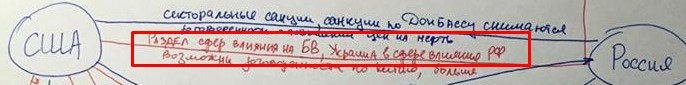 секторальные санкции, санкции по Донбассу снимаются
договоренности о повышении цен на нефть
США
Раздел сфер влияния на БВ, Украина в сфере влияния РФ
Россия
возможны договоренности по Китаю, больше